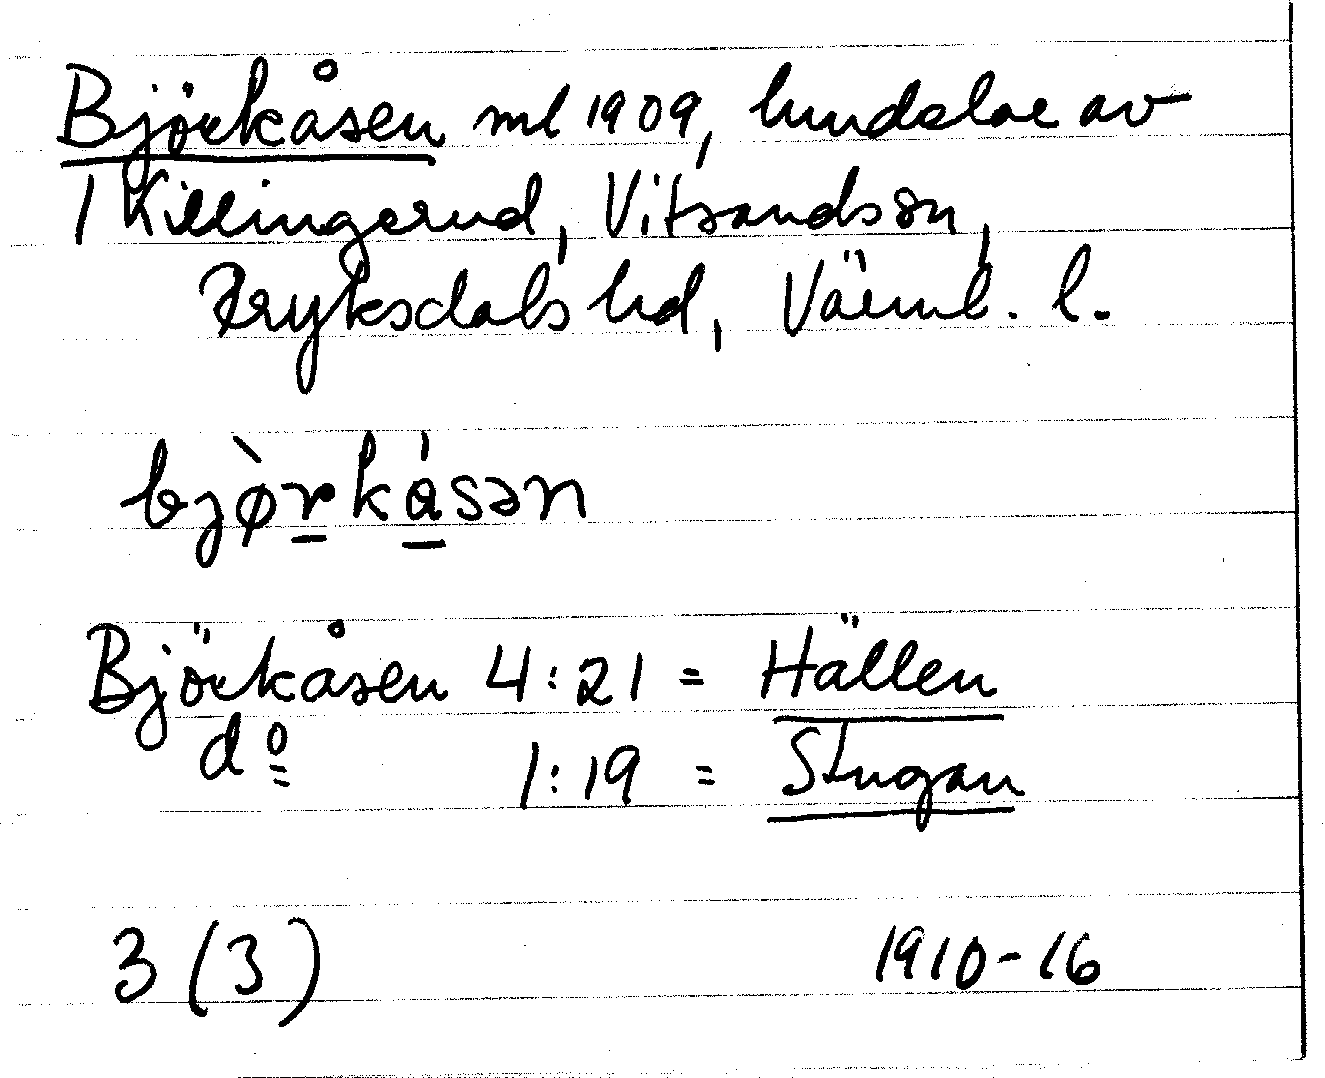 Björkåsen ml 1909, hmdelar av
1 Killingerud, Vitsands sn,
Fryksdals hd, Värml. l.
bjø̀rkåsən
Björkåsen 4:21 = Hällen
do 1:19 = Stugan
3 (3) 1910-16